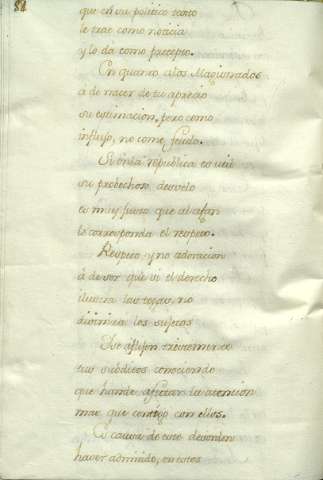 que en su politico texto
le trae como noticia
y lo da como precepto.
En quanto a los Magistrados
á de nacer de tu aprecio
su estimacion, pero como
influjo, no como feudo.
Si en la republica es util
su probechoso desvelo
es muy justo que al afan
le corresponda el respeto.
Respeto, y no adoracion
á de ser que si el derecho
ilustra las togas, no
diviniza los sujetos
Se aflijen tristemente
tus subditos conociendo
que han de afectar la atencion
mas que contigo con ellos.
Es causa de este desorden
haver admitido, en estos